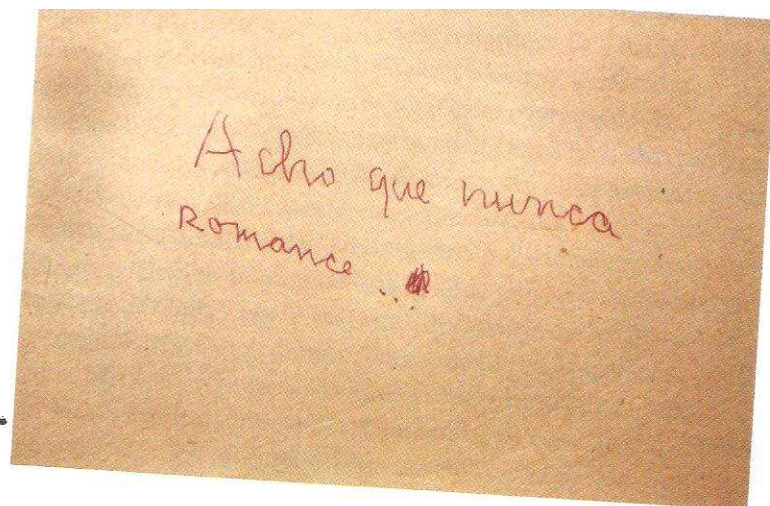 Acho que nunca
Romance...